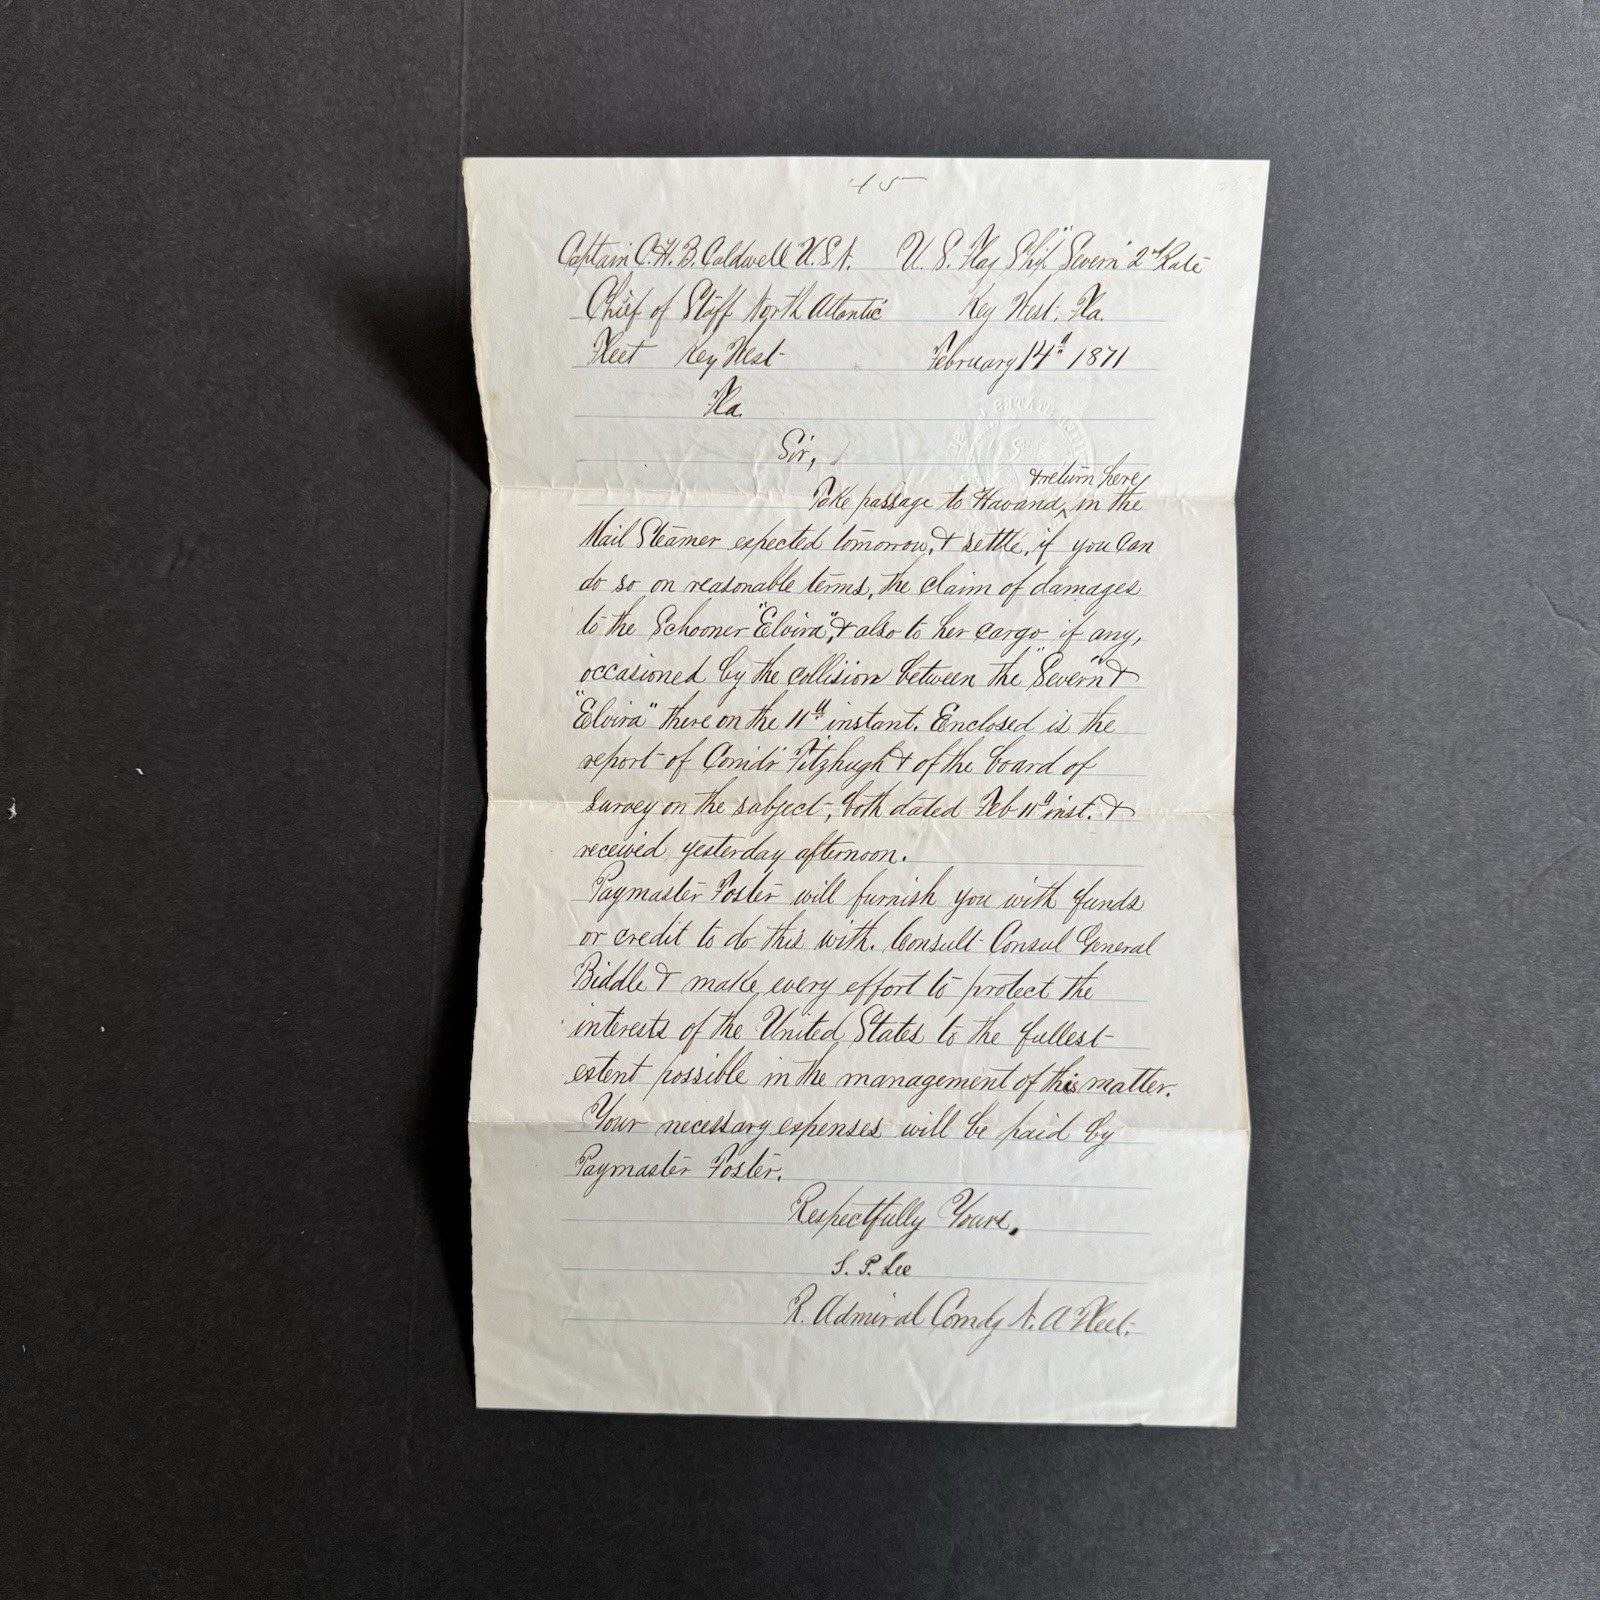 45
Captain C. H. B. Caldwell U.S.N. U. S. Flag Ship "Severn" 2nd Rate
Chief of Staff North Atlantic Key West, Fla.
Fleet Key West February 14th 1871
Fla.
Sir,
& return here
Take passage to Havana, ^ in the
Mail Steamer expected tomorrow, & settle, if you can
do so on reasonable terms, the claim of damages
to the Schooner "Elvira", & also to her cargo if any,
occasioned by the collision between the "Severn" &
"Elvira" there on the 11th instant. Enclosed is the
report of Comdr Fitzhugh & of the board of
survey on the subject, both dated Feb 11th inst. &
received yesterday afternoon.
Paymaster Foster will furnish you with funds
or credit to do this with. Consult Consul General
Biddle & make every effort to protect the
interests of the United States to the fullest
extent possible in the management of this matter.
Your necessary expenses will be paid by
Paymaster Foster.
Respectfully Yours.
S. P. Lee
R. Admiral Comdg N. A Fleet.